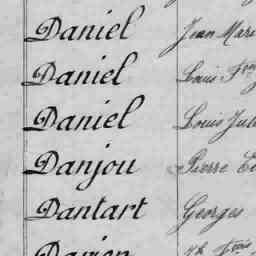 Daniel Jean Mari
Daniel Louis Fçois
Daniel Louis Jule
Danjou Pierre
Dantart Georges